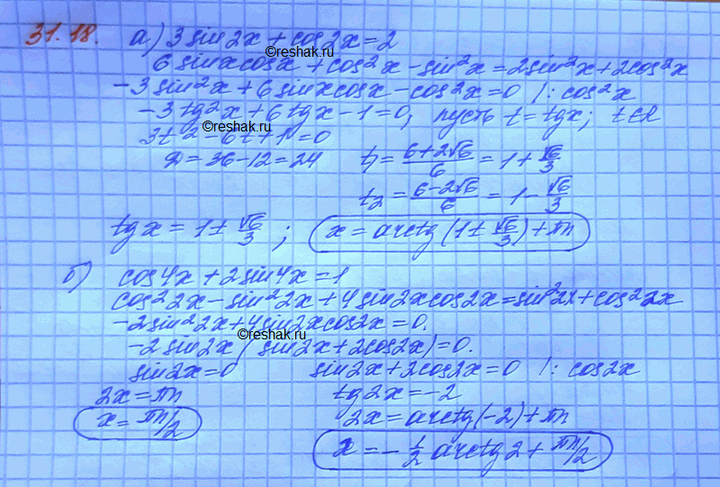 31.18. а) 3 sin 2x + cos 2x = 2
©reshak.ru
6 sinx cosx + cos²x - sin²x = 2sin²x + 2cos²x
-3 sin²x + 6 sinx cosx - cos²x = 0 /: cos²x
-3 tg²x + 6 tgx - 1 = 0, пусть t = tgx; t∈R
©reshak.ru
3t² - 6t + 1 = 0
D = 36 - 12 = 24 t₁ = (6+2√6)/6 = 1 + √6/3
t₂ = (6-2√6)/6 = 1 - √6/3
tgx = 1 ± √6/3 ; x = arctg(1 ± √6/3) + πn
б) cos4x + 2 sin4x = 1
cos²2x - sin²2x + 4 sin2x cos2x = sin²2x + cos²2x
-2sin²2x + 4sin2x cos2x = 0.
©reshak.ru
-2 sin2x ( sin2x + 2cos2x) = 0.
sin2x = 0 sin2x + 2cos2x = 0 /: cos2x
2x = πn tg2x = -2
x = πn/2 2x = arctg(-2) + πn
x = -½ arctg2 + πn/2